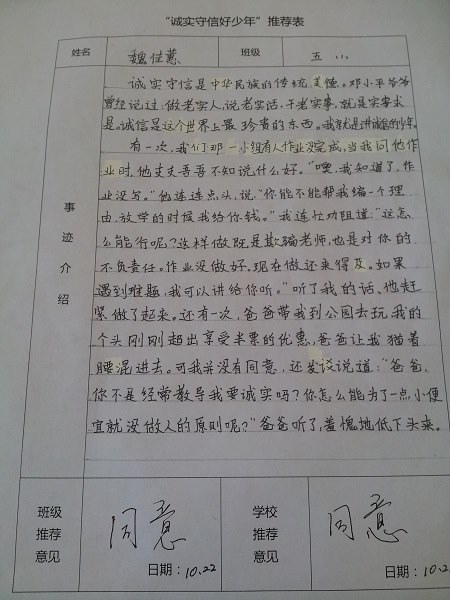 “诚实守信好少年”推荐表
姓名 魏佳蕙 班级 五
诚实守信是中华民族的传统美德。邓小平爷爷
曾经说过:做老实人,说老实话,干老实事,就是实事求
是。诚信是这个世界上最珍贵的东西。我就是讲诚信的少年。
有一次,我们那一小组有人作业没完成,当我问他作
业时,他支支吾吾不知说什么好。“嘿,我知道了,作
业没写。”他连连点头,说:“你能不能帮我编一个理
由,放学的时候我给你钱。”我连忙劝阻道:“这怎
么能行呢?这样做既是欺骗老师,也是对你的
不负责任。作业没做好,现在做还来得及。如果
遇到难题,我可以讲给你听。”听了我的话、他赶
紧做了起来。还有一次,爸爸带我到公园去玩,我的
个头刚刚超出享受半票的优惠,爸爸让我猫着
腰混进去。可我并没有同意,还发谈说道:“爸爸,
你不是经常教导我要诚实吗?你怎么能为了一点小便
宜就没做人的原则呢?”爸爸听了,羞愧地低下头来。
事迹介绍
班级推荐意见 同意 日期:10.22
学校推荐意见 同意 日期:10.22